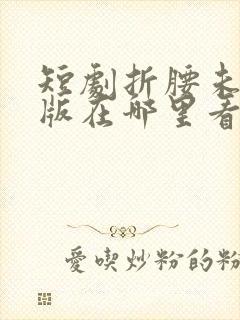 短劇折腰未
版在哪里看
愛喫炒粉的粉